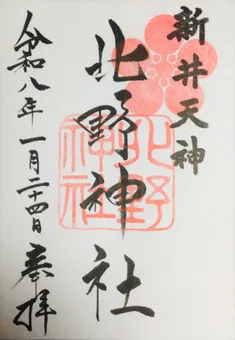 新井天神
北野神社
令和八年一月二十四日 奉拝
北野
神社